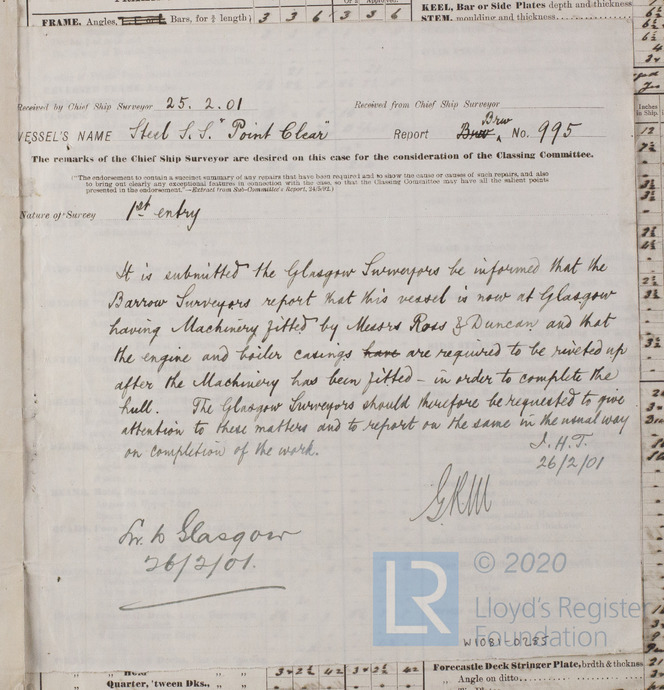 FRAME, Angles, Bars, for ¾ length 3 3 6 3 3 6
KEEL, Bar or Side Plates depth and thickness
STEM, moulding and thickness
Received by Chief Ship Surveyor 25.2.01 Received from Chief Ship Surveyor
VESSEL'S NAME Steel S.S. "Point Clear" Report Brw Brw No. 995
The remarks of the Chief Ship Surveyor are desired on this case for the consideration of the Classing Committee.
("The endorsement to contain a succinct summary of any repairs that have been required and to show the cause or causes of such repairs, and also
to bring out clearly any exceptional features in connection with the case, so that the Classing Committee may have all the salient points
presented in the endorsement."—Extract from Sub-Committee's Report, 24/5/92.)
Nature of Survey 1st entry
It is submitted the Glasgow Surveyors be informed that the
Barrow Surveyors report that this vessel is now at Glasgow
having Machinery fitted by Messrs Ross & Duncan and that
the engine and boiler casings have are required to be riveted up
after the Machinery has been fitted – in order to complete the
hull. The Glasgow Surveyors should therefore be requested to give
attention to these matters and to report on the same in the usual way
on completion of the work.
J.H.T.
26/2/01
Glasgow
26/2/01.
LR © 2020
Lloyd's Register
Foundation
W1081-0255
Quarter, 'tween Dks., " "
Forecastle Deck Stringer Plate, brdth & thickn
" Angle on ditto